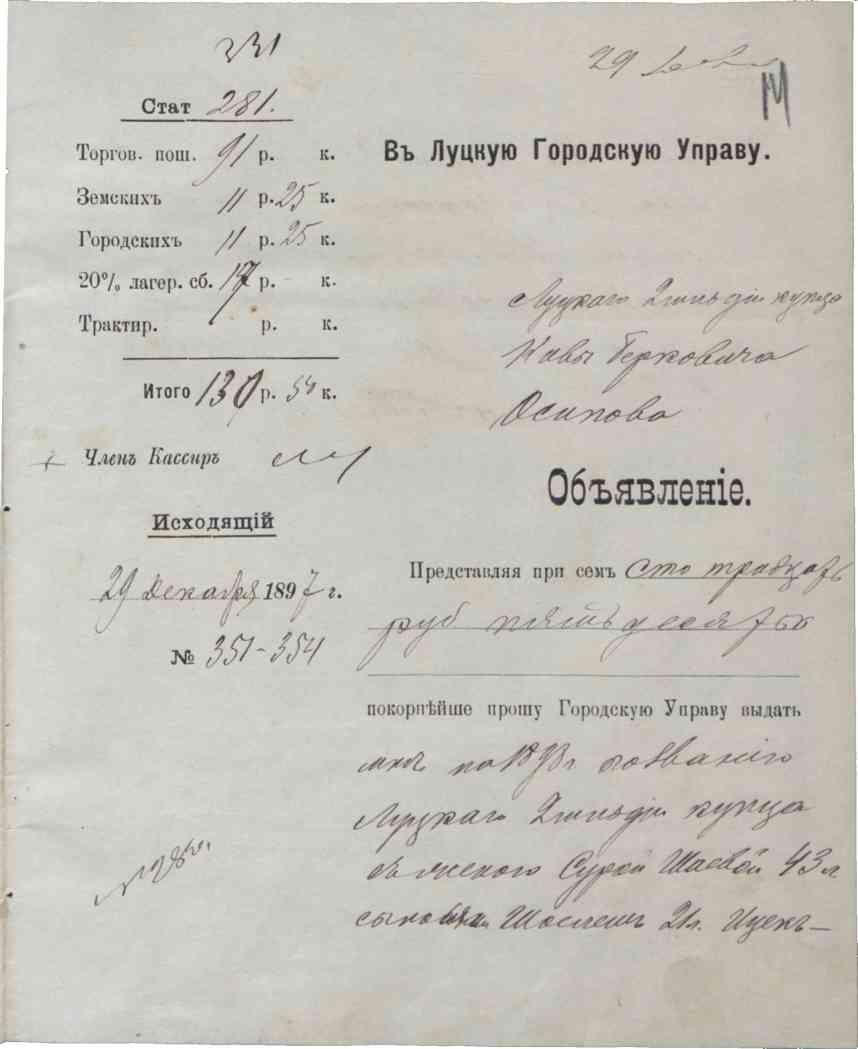 331
29
Стат 281.
Торгов. пош. 91 р. к.
Земскихъ 11 р. 25 к.
Городскихъ 11 р. 25 к.
20% лагер. сб. 17 р. - к.
Трактир. р. к.
Итого 130 р. 50 к.
Членъ Кассиръ
Исходящій
29 Декабря 1897 г.
№ 351-354
Въ Луцкую Городскую Управу.
Луцкаго 2 гильдіи купца
Берковича
Осипова
Объявленіе.
Представляя при семъ сто тридцать
руб пятьдесятъ к
покорнѣйше прошу Городскую Управу выдать
мнѣ на 1898 г
Луцкаго 2 гильдіи купца
съ женою Сурой Шаевой 43 л
сыновьями 21 л. Ицекъ-